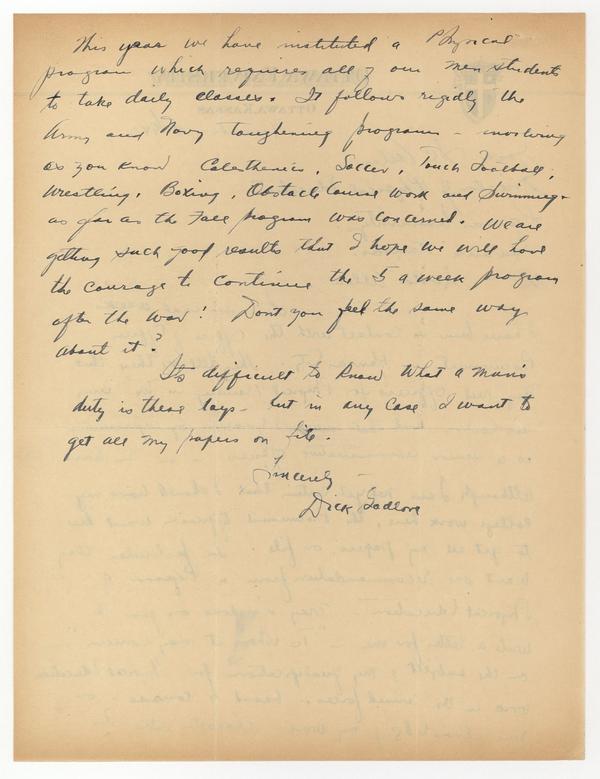 This year we have instituted a Physical
program which requires all of our men students
to take daily classes. It follows rigidly the
Army and Navy toughening programs - involving
as you know Calesthenics, Soccer, Touch Football,
Wrestling, Boxing, Obstacle Course work and Swimming -
as far as the Fall program was concerned. We are
getting such good results that I hope we will have
the courage to continue the 5 a week program
after the war! Dont you feel the same way
about it?
Its difficult to know what a man's
duty is these days - but in any case I want to
get all my papers on file.
Sincerely -
Dick Godlove